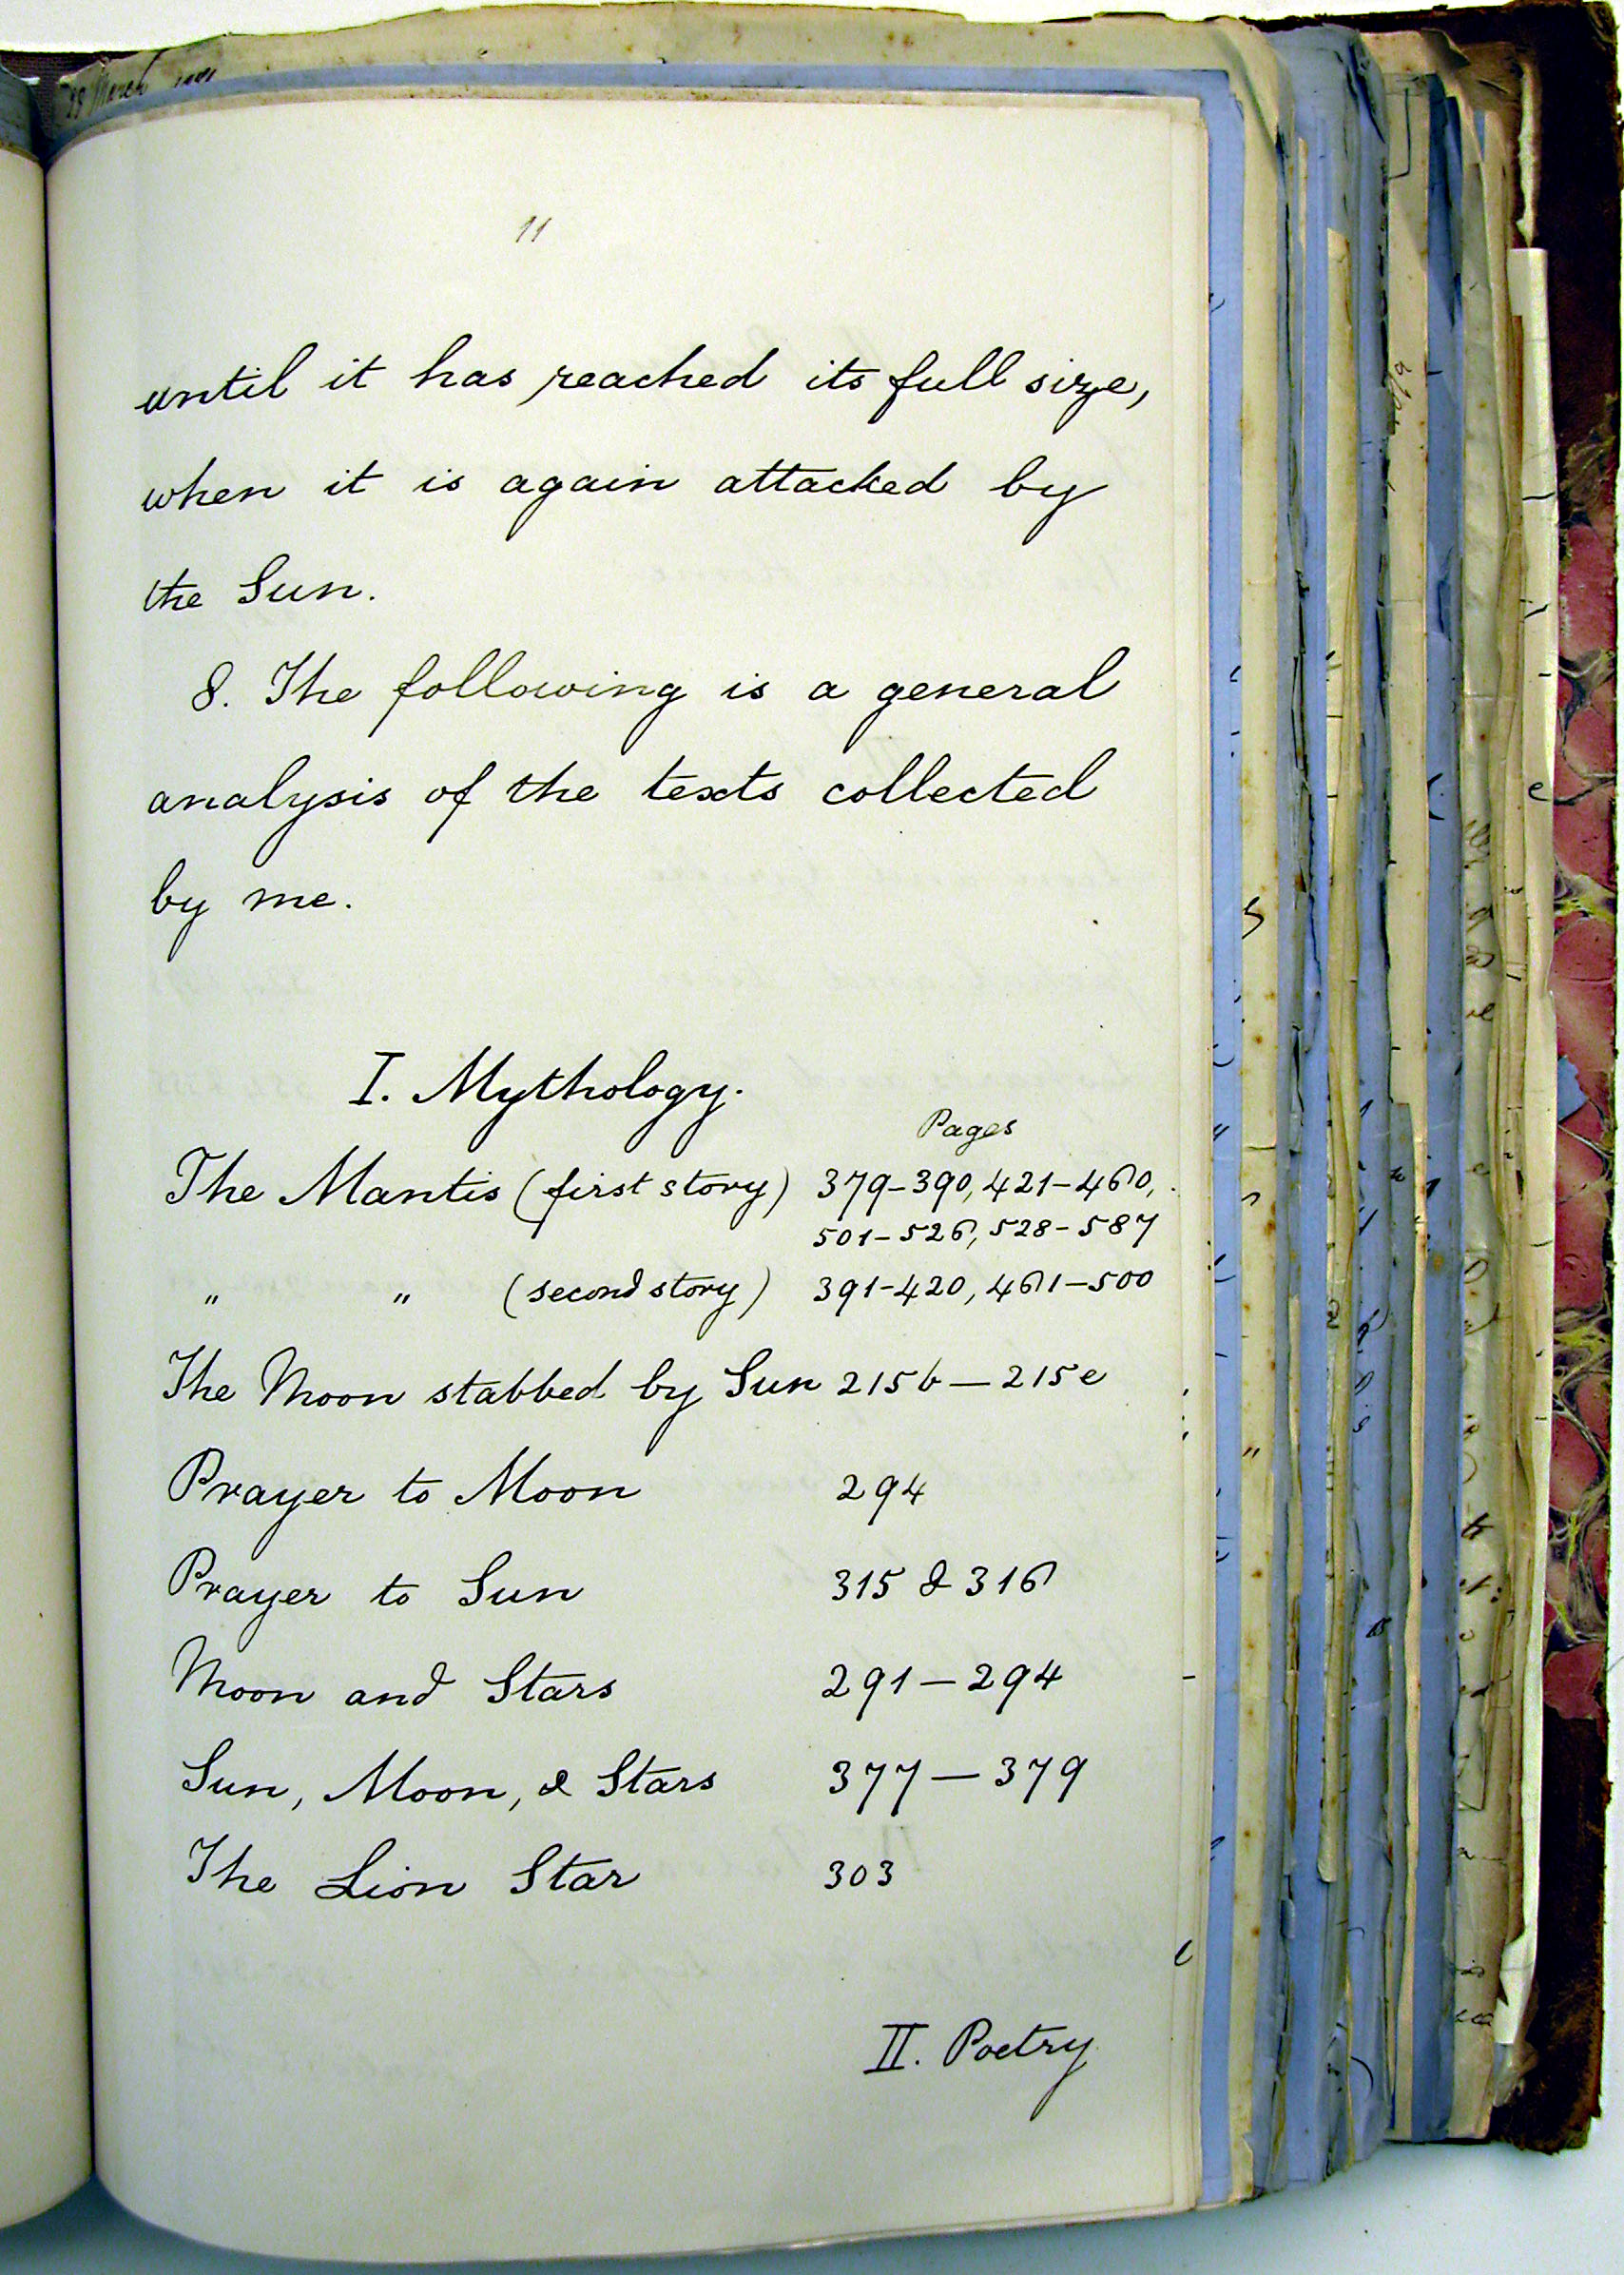 28 March
11
until it has reached its full size,
when it is again attacked by
the Sun.
8. The following is a general
analysis of the texts collected
by me.
I. Mythology.
Pages
The Mantis (first story) 379-390, 421-460,
501-526, 528-587
" " (second story) 391-420, 461-500
The Moon stabbed by Sun 215b—215e
Prayer to Moon 294
Prayer to Sun 315 & 316
Moon and Stars 291—294
Sun, Moon, & Stars 377—379
The Lion Star 303
II. Poetry